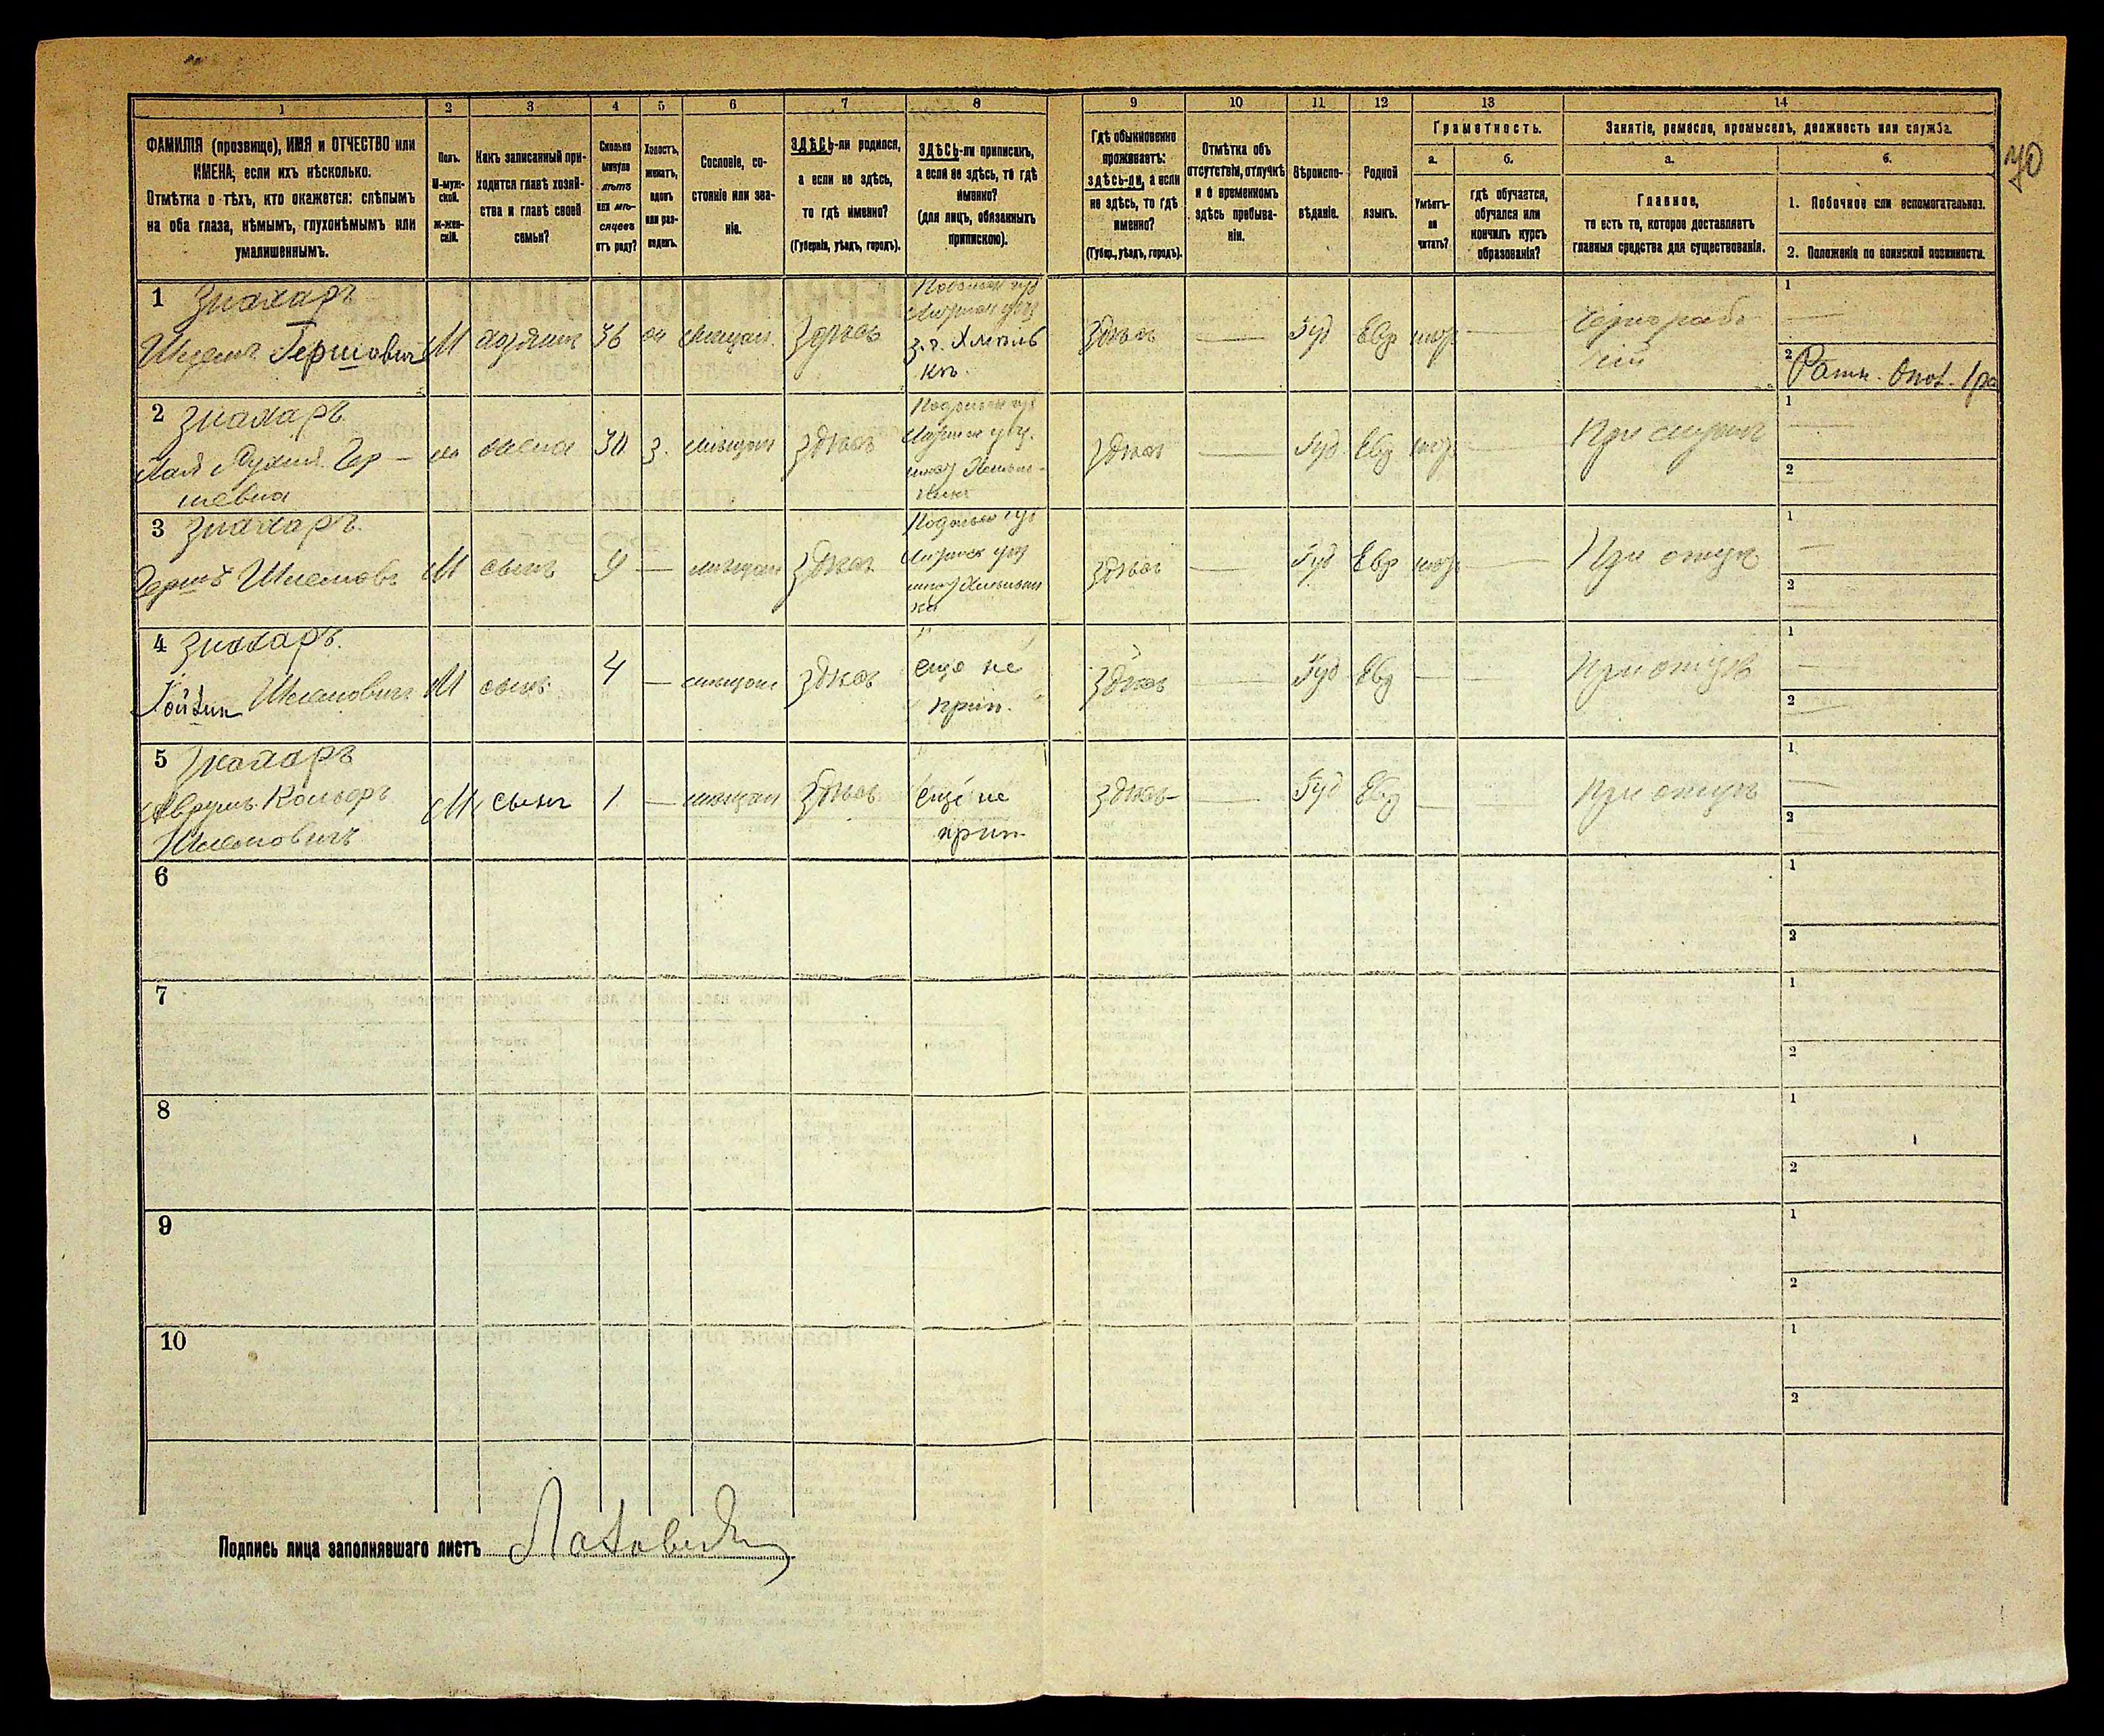 70
1 2 3 4 5 6 7 8 9 10 11 12 13 14
ФАМИЛІЯ (прозвище), ИМЯ и ОТЧЕСТВО или
ИМЕНА, если ихъ нѣсколько.
Отмѣтка о тѣхъ, кто окажется: слѣпымъ
на оба глаза, нѣмымъ, глухонѣмымъ или
умалишеннымъ.
Полъ.
М-муж-
ской.
Ж-жен-
скій.
Какъ записанный при-
ходится главѣ хозяй-
ства и главѣ своей
семьи?
Сколько
минуло
лѣтъ
или мѣ-
сяцевъ
отъ роду?
Холостъ,
женатъ,
вдовъ
или раз-
веденъ.
Сословіе, со-
стояніе или зва-
ніе.
ЗДѢСЬ-ли родился,
а если не здѣсь,
то гдѣ именно?
(Губернія, уѣздъ, городъ).
ЗДѢСЬ-ли приписанъ,
а если не здѣсь, то гдѣ
именно?
(для лицъ, обязанныхъ
припискою).
Гдѣ обыкновенно
проживаетъ:
здѣсь-ли, а если
не здѣсь, то гдѣ
именно?
(Губер., уѣздъ, городъ).
Отмѣтка объ
отсутствіи, отлучкѣ
и о временномъ
здѣсь пребыва-
ніи.
Вѣроиспо-
вѣданіе.
Родной
языкъ.
Грамотность.
а.
Умѣетъ-
ли
читать?
б.
гдѣ обучается,
обучался или
кончилъ курсъ
образованія?
Занятіе, ремесло, промыселъ, должность или служба.
а.
Главное,
то есть то, которое доставляетъ
главныя средства для существованія.
б.
1. Побочное или вспомогательное.
2. Положеніе по воинской повинности.
1 Знахаръ
Шлема Гершовичъ
М
хозяинъ
36
мѣщан.
здѣсь
Подольск губ
Хмѣль
къ.
здѣсь
—
Іуд
Евр
—
Чернорабо
чій
1
—
2 Ратн. Опол. 1 ра
2 Знахаръ
Гер-
шевна
жена
30
з.
мѣщан
здѣсь
Подольск губ
здѣсь
—
Іуд
Евр
—
При мужѣ
1
—
2
3 Знахаръ
Гершъ Шлемовъ
М
сынъ
9
—
мѣщан
здѣсь
Подольск губ
здѣсь
—
Іуд
Евр
—
При отцѣ
1
—
2
4 Знахаръ.
Шлемовичъ
М
сынъ
4
—
мѣщан
здѣсь
еще не
прип.
здѣсь
—
Іуд
Евр
—
—
При отцѣ
1
—
2
5 Знахаръ
Аврумъ
Шлемовичъ
М
сынъ
1
—
мѣщан
здѣсь
еще не
прип.
здѣсь
—
Іуд
Евр
—
—
При отцѣ
1
—
2
6
1
2
7
1
2
8
1
2
9
1
2
10
1
2
Подпись лица заполнявшаго листъ